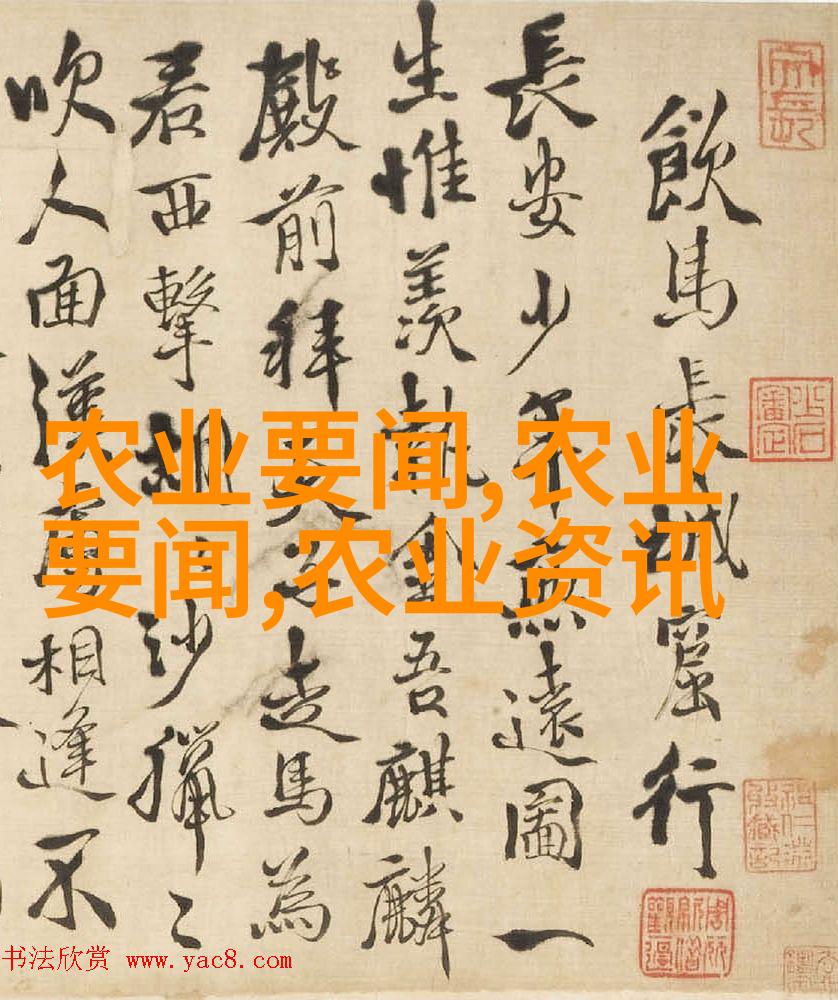 飲馬長城窟行
長安少年無遠圖一
生惟羨執金吾麒麟
殿前拜天子走馬為
君西擊胡〻沙獵〻
吹人面漢虜相逢不
农业要闻,农业
要闻,农业资讯
书法欣赏 www.yac8.com